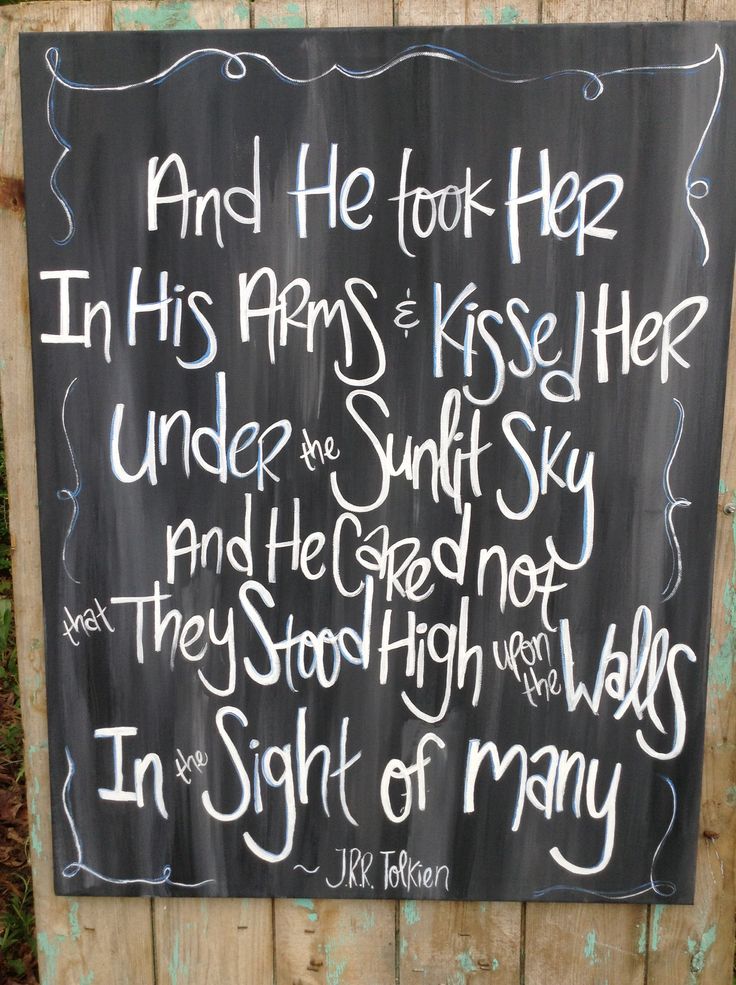 And He took Her
In His Arms & Kissed Her
under the Sunlit Sky
And He Cared not
that They Stood High upon the Walls
In the Sight of many
~ J.R.R. Tolkien